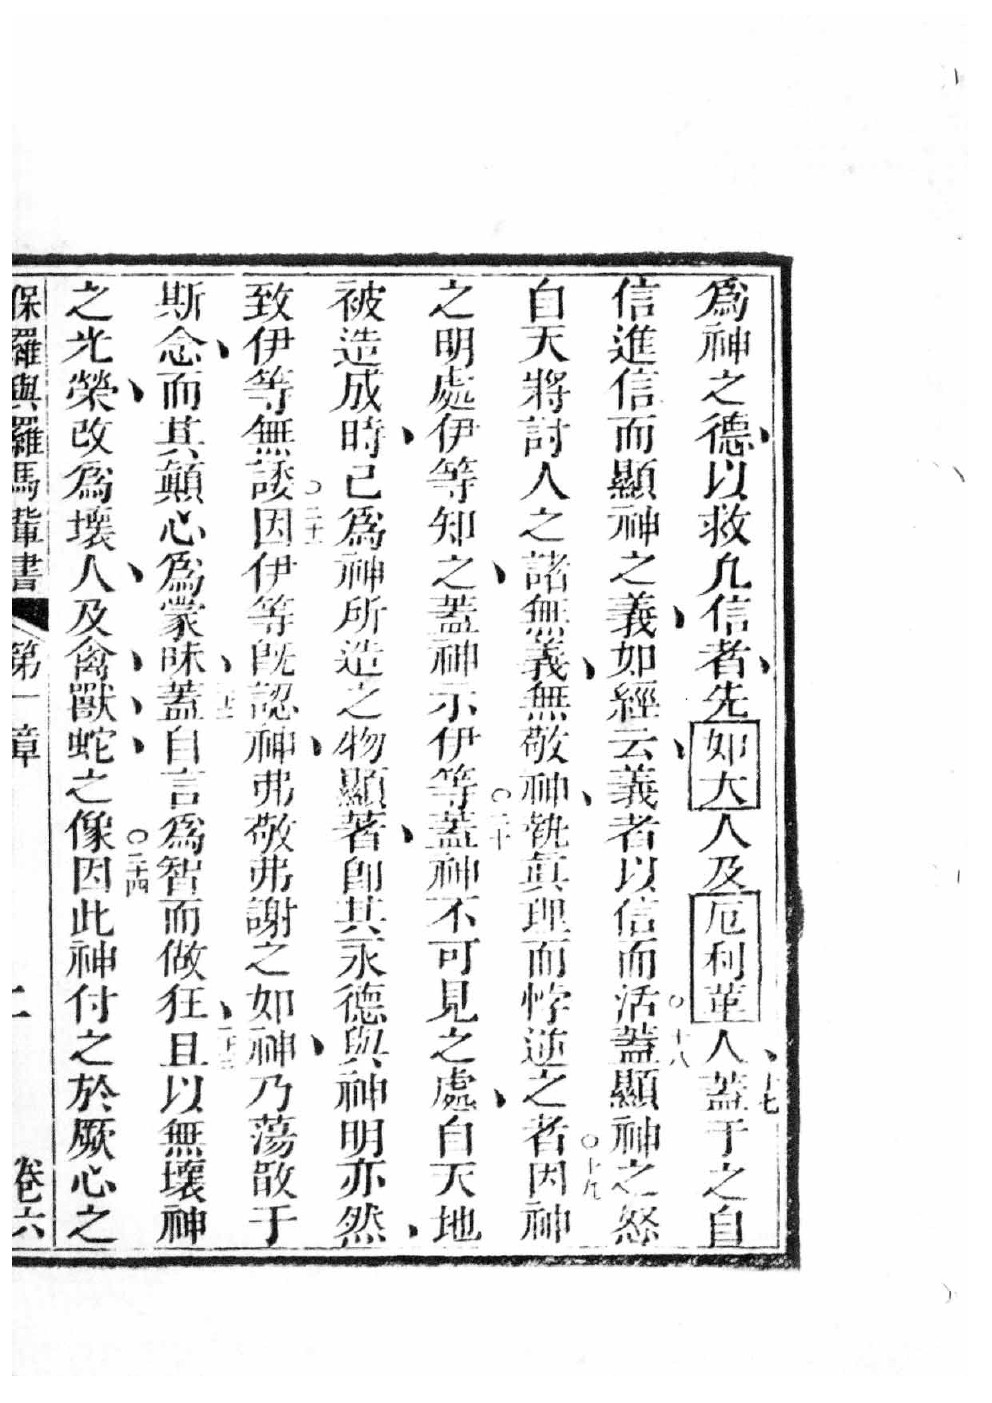 爲神之德、以救凢信者、先如大人及厄利革人、十七蓋于之自
信進信而顯神之義、如經云、義者以信而活○十八蓋顯神之怒
自天將討人之諸無義、無敬神、執眞理而悖逆之者○十九因神
之明處伊等知之、蓋神示伊等○二十蓋神不可見之處、自天地
被造成時、已爲神所造之物顯著、卽其永德與神明亦然、
致伊等無諉○二十一因伊等旣認神、弗敬弗謝之如神、乃蕩散于
斯念、而其顛心爲蒙昧、二十二蓋自言爲智而做狂、二十三且以無壞神
之光榮、改爲壞人、及禽、獸、蛇、之像○二十四因此神付之於厥心之
保羅與羅馬軰書 第一章 二 卷六